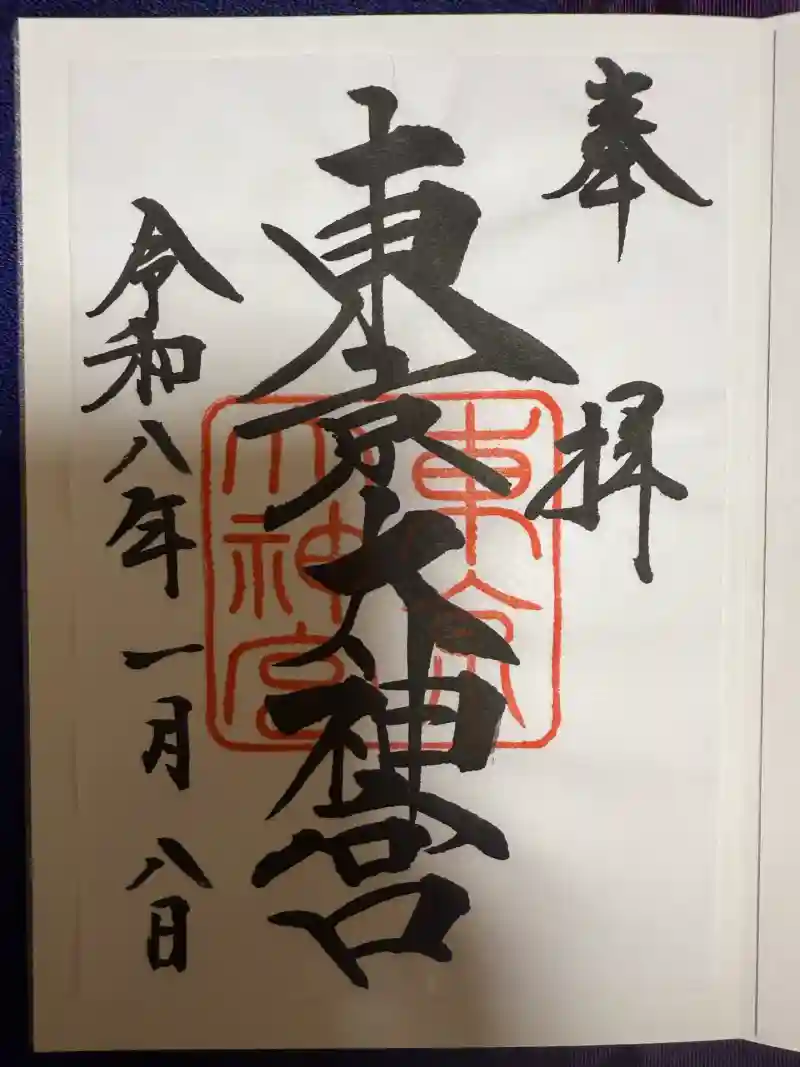 奉拝
東京大神宮
東京大神宮
令和八年一月八日